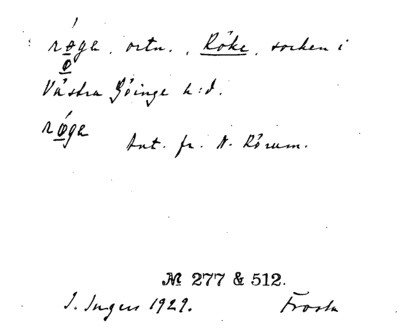 røga, ortn., Röke, socken i
ø
Västra Göinge h:d.
røga Ant. fr. N. Rörum.
№ 277 & 512.
I. Ingers 1929. Frosta